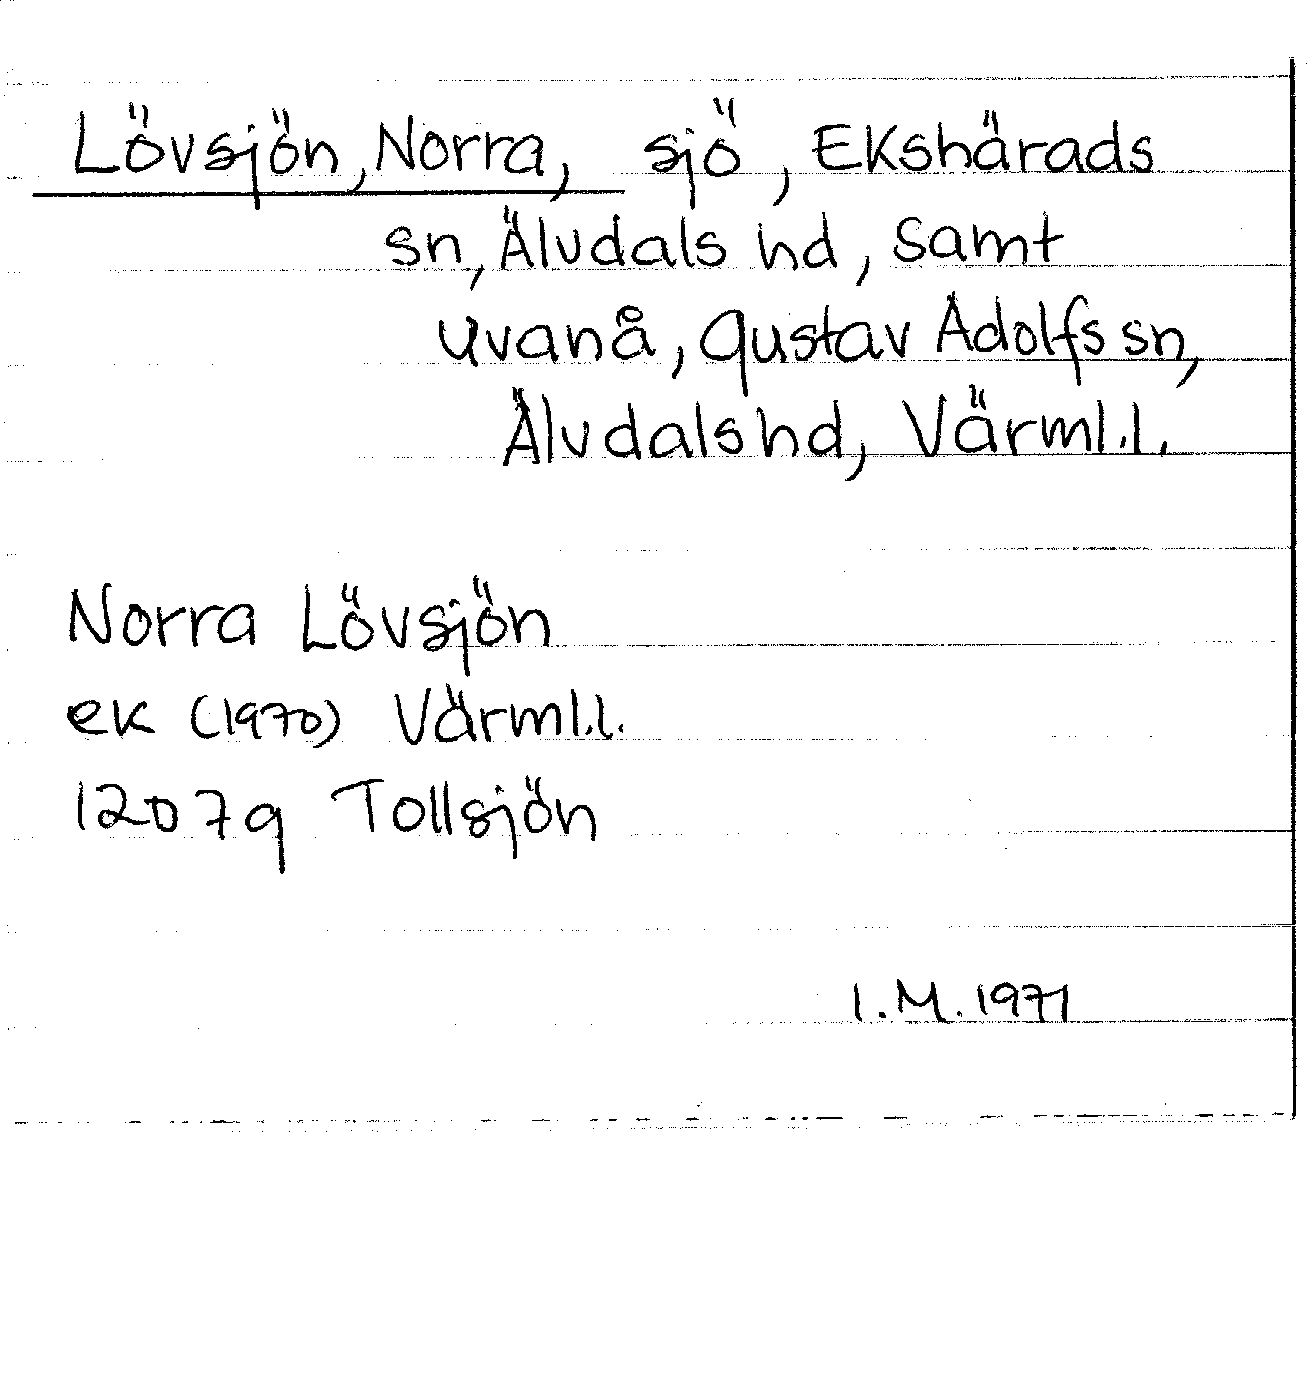 Lövsjön, Norra, sjö, Ekshärads
sn, Älvdals hd, samt
Uvanå, Gustav Adolfs sn,
Älvdals hd, Värml.l.
Norra Lövsjön
ek (1970) Värml.l.
12079 Tollsjön
I.M. 1971